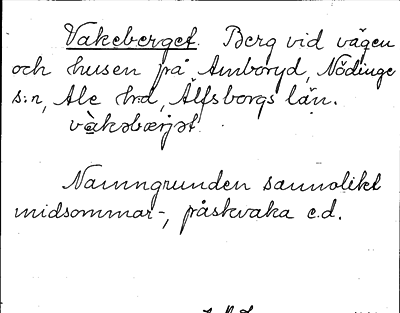 Vakeberget. Berg vid vägen
och husen på Amboryd, Nödinge
s:n, Ale hrd, Älfsborgs län.
vàkəbærjət.
Namngrunden sannolikt
midsommar-, påskvaka e.d.